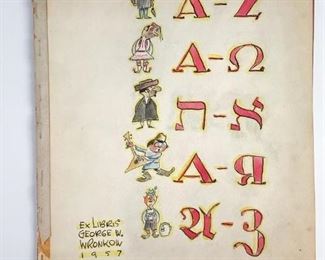 A-Z
Α-Ω
א-ת
А-Я
A-Z
EX LIBRIS
GEORGE W.
WRONKOW
1957